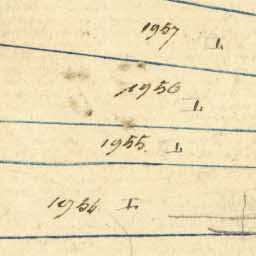 1957 I.
1956 I.
1955. I.
1954 I.